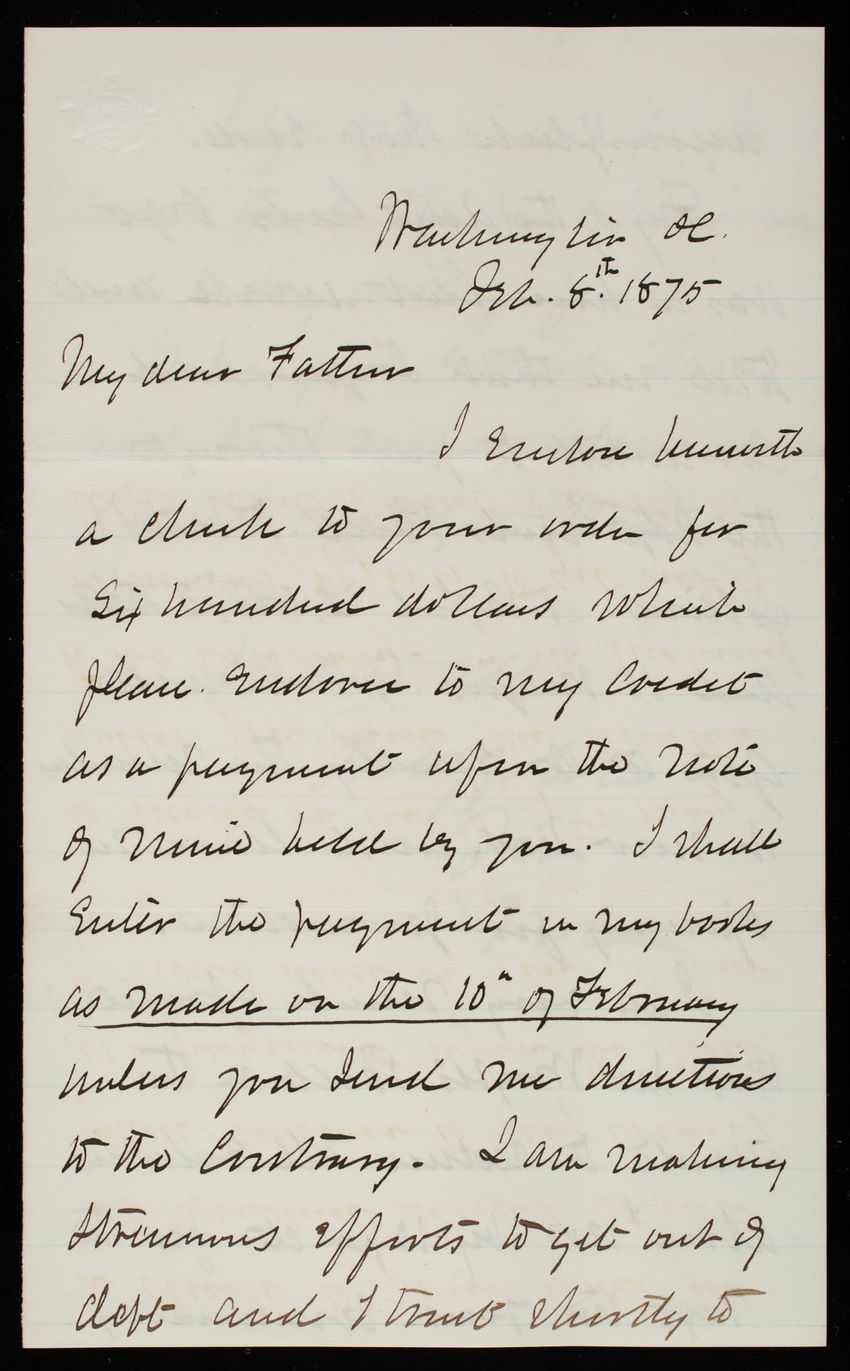 Washington DC.
Feb. 8th. 1875
My dear Father
I Enclose herewith
a check to your order for
Six hundred dollars which
please Endorse to my Credit
as a payment upon the note
of mine held by you. I shall
Enter the payment in my books
as made on the 10th of February
unless you send me directions
to the Contrary. I am making
strenuous efforts to get out of
debt and I trust shortly to